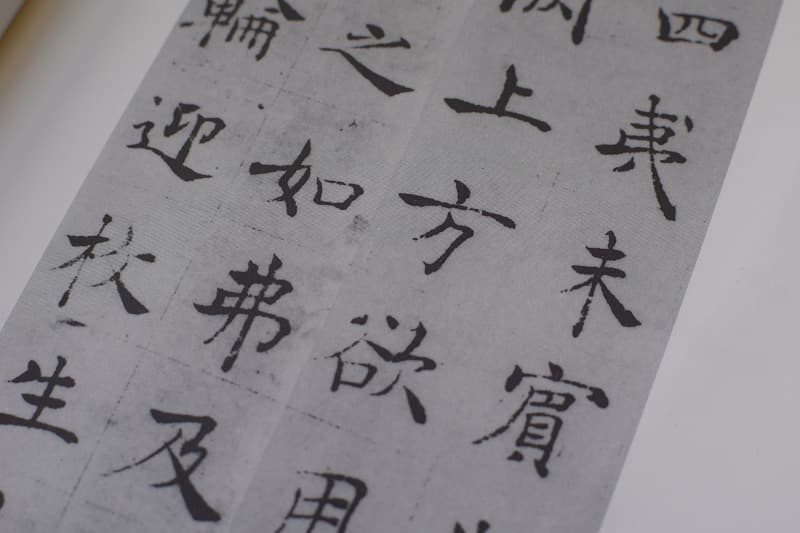 四夷未賓
上方欲用
之如弗及
輪迎枚生